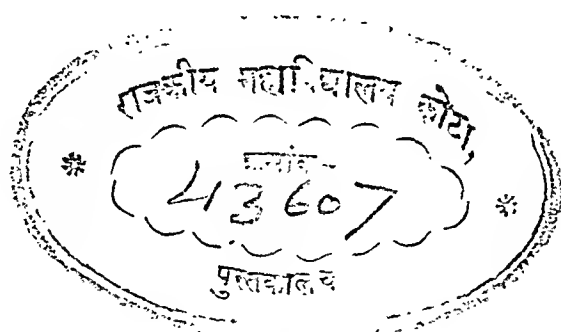 राजकीय महाविद्यालय कोटा,
43607
पुस्तकालय